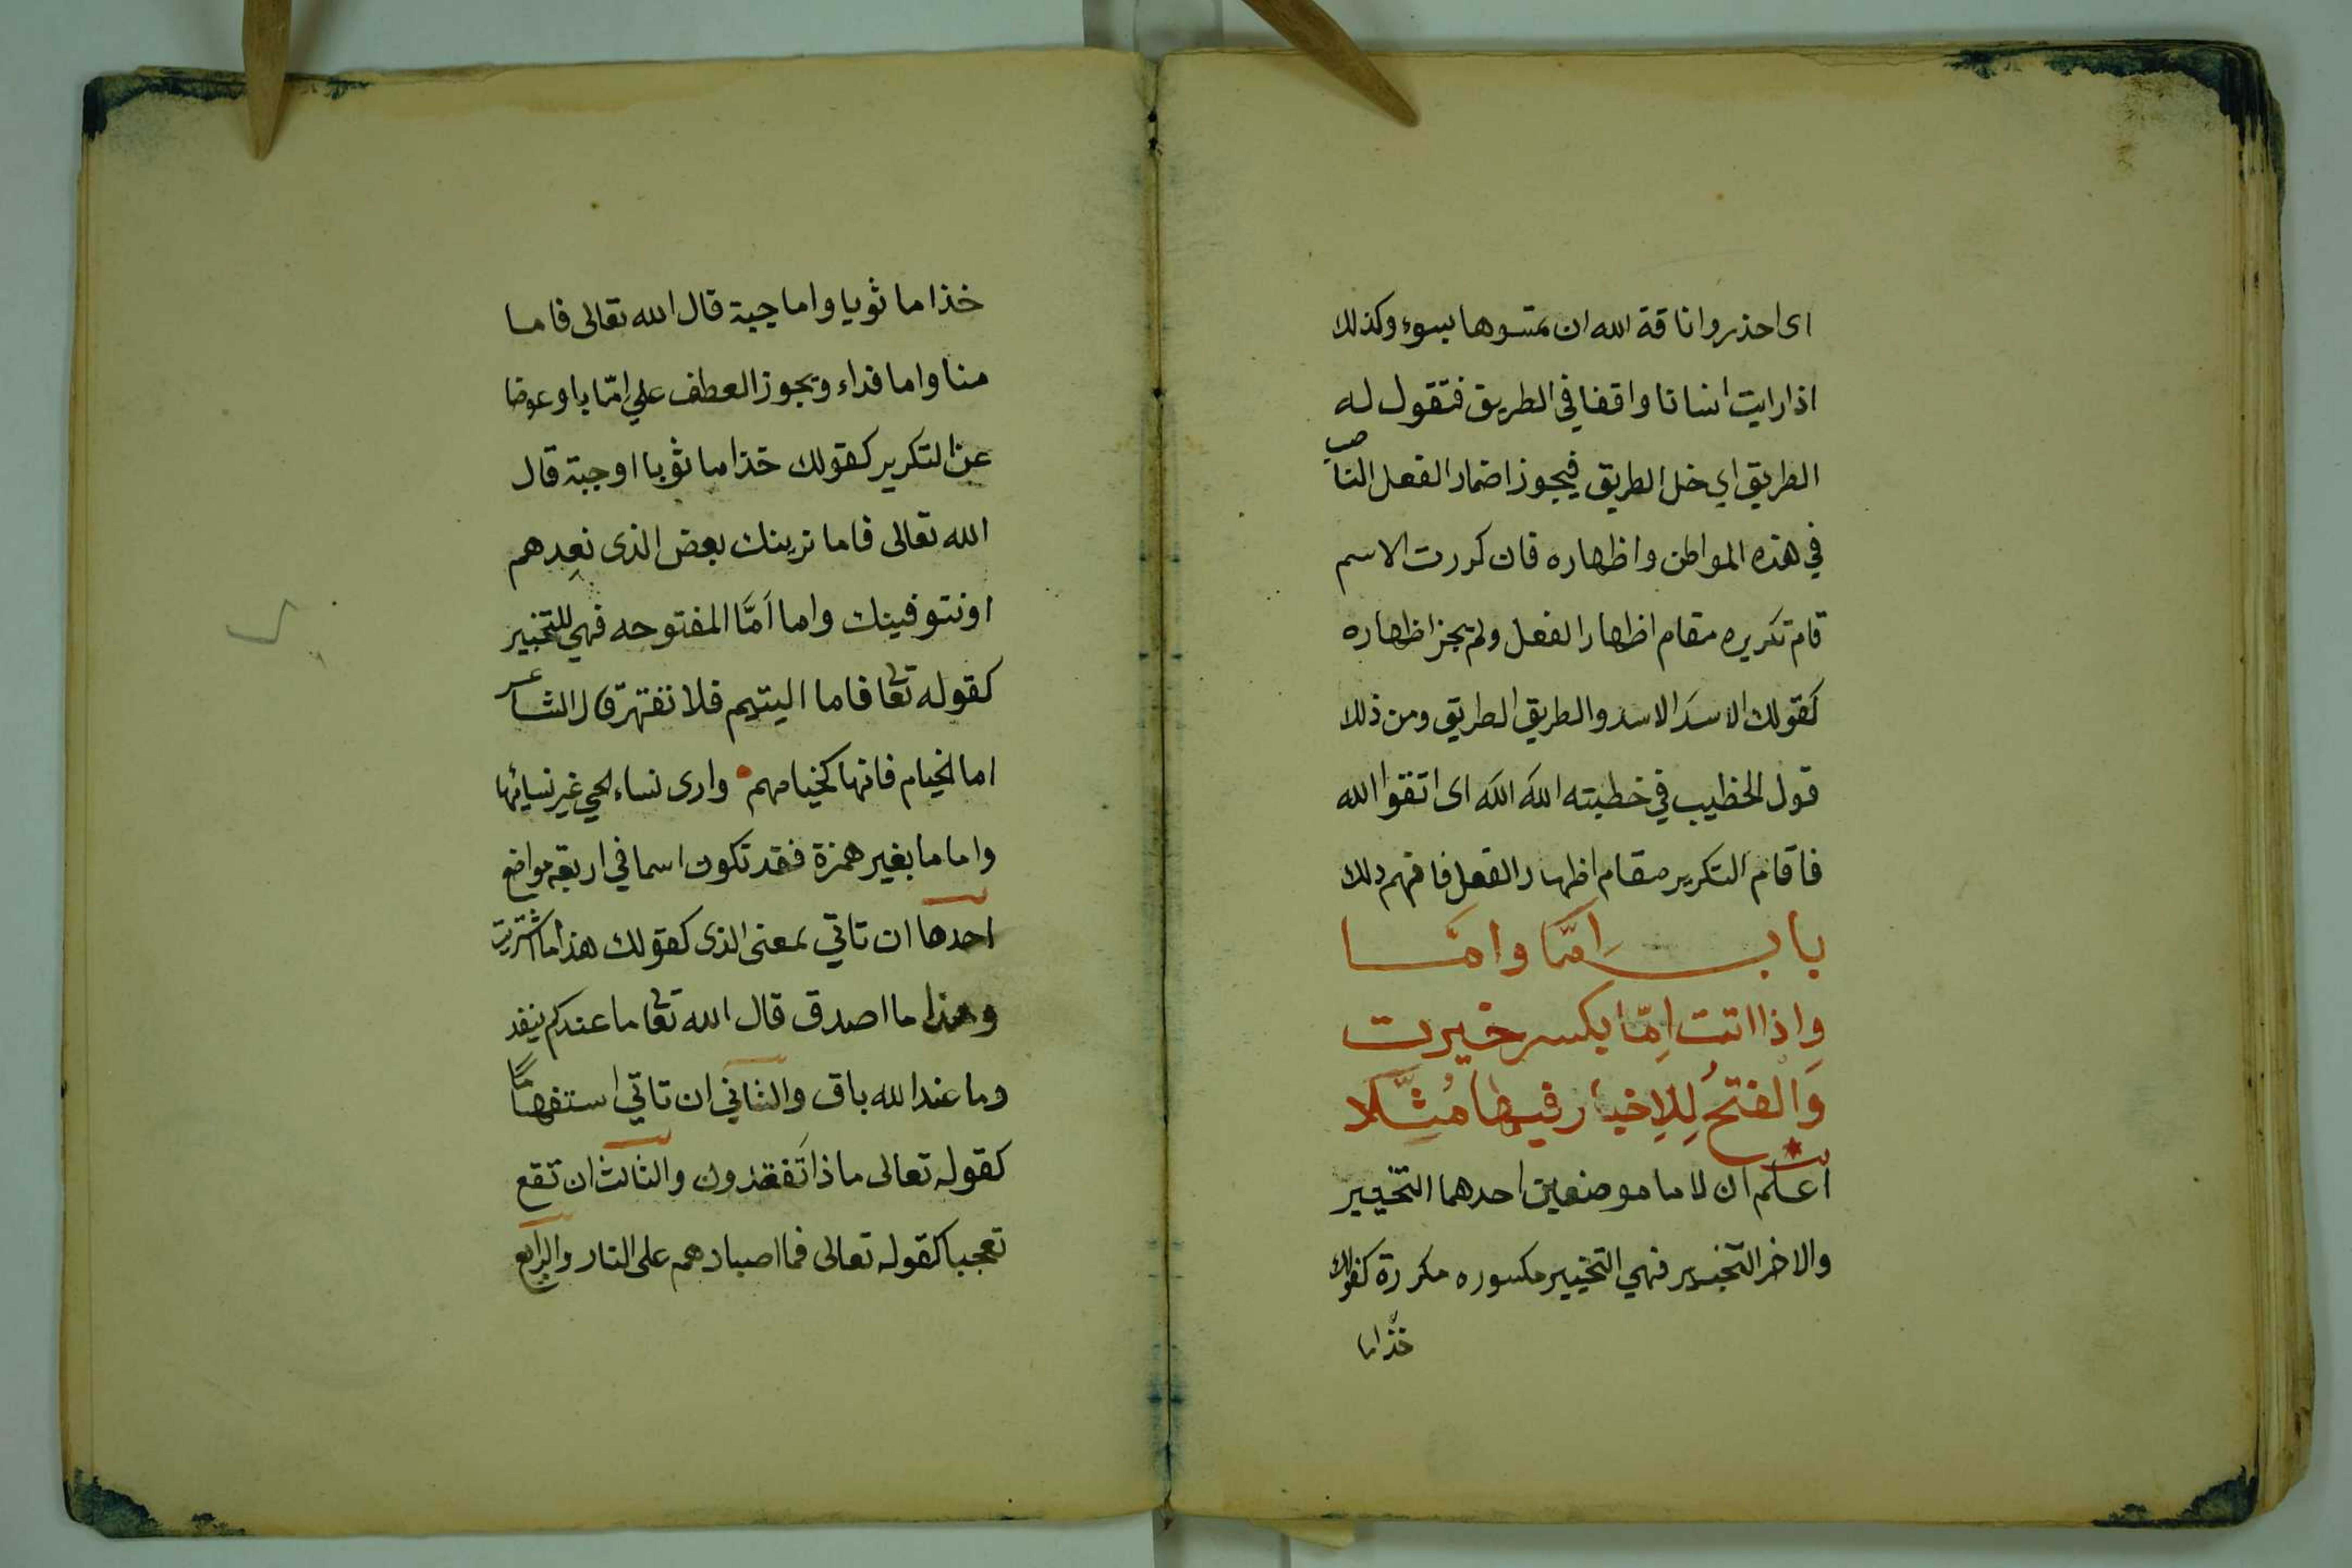 اى احذروا ناقة الله ان تمتسوها بسوء وكذلك
اذا رايت انسانا واقفا في الطريق فتقول له
الطريق اي خل الطريق فيجوز اضمار الفعل الناصب
في هذه المواطن واظهاره فان كررت الاسم
قام تكريره مقام اظهار الفعل ولم يجز اظهاره
كقولك الاسدَ الاسد والطريق الطريق ومن ذلك
قول الخطيب في خطبته اللهَ اللهَ اى اتقوا الله
فاقام التكرير مقام اظهار الفعل فافهم ذلك
باب اِمّا وامَّا
وَاذا اتت اِمّا بكسر خيرت
وَالفتحُ لِلاِخبار فيها مُثِّلا
اعلم ان لاما موضعين احدهما التخيير
والاخر التخيير فهي التخيير مكسوره مكررة كقولك
خذ اما
خذ اما ثوبا واما جبة قال الله تعالى فاما
منا واما فداء ويجوز العطف علي اِمّا باو عوضا
عن التكرير كقولك خذ اما ثوبا او جبة قال
الله تعالى فاما نرينك بعض الذى نعِدهم
او نتوفينك واما اَمَّا المفتوحه فهي للتخيير
كقوله تعا فاما اليتيم فلا تقهر قال الشاعر
اما الخيام فانها كخيامهم وارى نساء الحي غير نسائها
واما ما بغير همزة فقد تكون اسما في اربعة مواضع
احدها ان تاتي بمعنى الذى كقولك هذا ما اشتريت
وهذا ما اصدق قال الله تعا ما عندكم ينفد
وما عند الله باق والثاني ان تاتي استفهامًا
كقوله تعالى ماذا تَفقدون والثالث ان تقع
تعجبا كقوله تعالى فما اصبارهم على النار والرابع